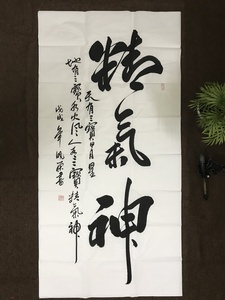 精氣神
天有三寳日月星
地有三寳水火風人有三寳精氣神
戊戌年
書